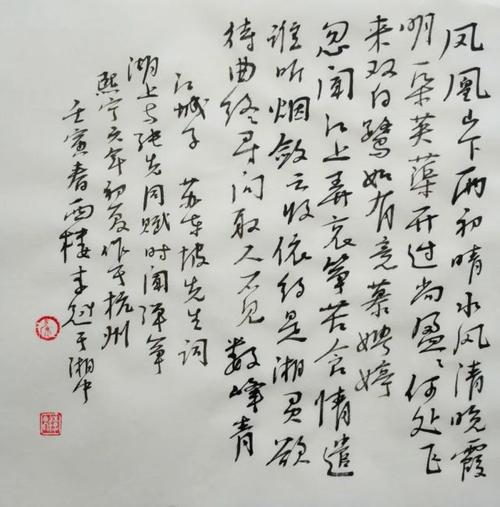 凤凰山下雨初晴水风清晚霞
明朵芙蕖开过尚盈々何处飞
来双白鹭如有意慕娉婷
忽闻江上弄哀筝苦含情遣
谁听烟敛云收依约是湘灵欲
待曲终寻问取人不见数峰青
江城子 苏东坡先生词
湖上与张先同赋时闻弹筝
熙宁六年初夏作于杭州
壬寅春西楼李于湘中